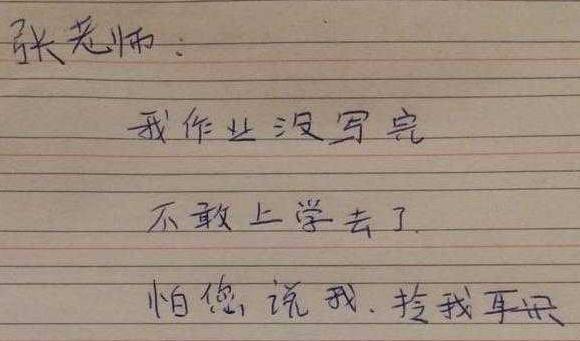 张老师：
我作业没写完
不敢上学去了.
怕您说我.拎我耳朵